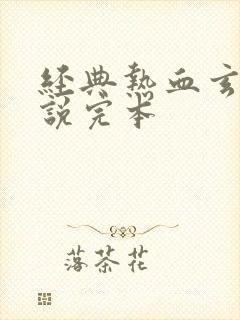 經典熱血玄
說完本
落茶花